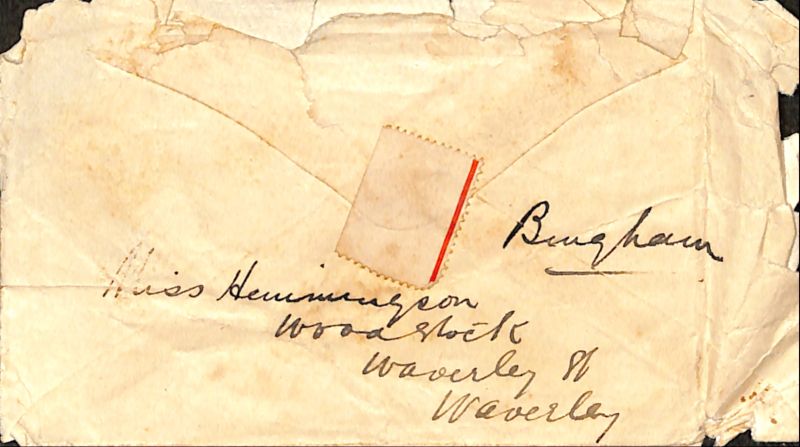 Bingham
Miss Hemmingson
Woodstock
Waverley St
Waverley